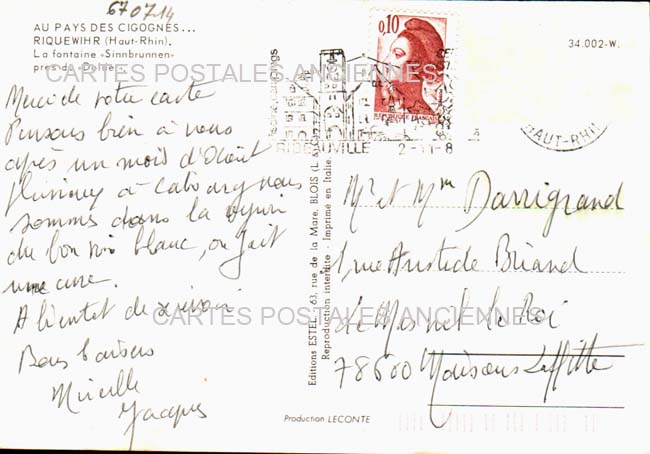 670714
AU PAYS DES CIGOGNES...
RIQUEWIHR (Haut-Rhin).
La fontaine «Sinnbrunnen»
près du «Dolder»
CARTES POSTALES ANCIENNES
34.002-W.
0,10
REPUBLIQUE FRANÇAISE
RIBEAUVILLE
2-11-8
HAUT-RHIN
Merci de votre carte
Pensons bien à vous
après un mois d'Août
à Cabourg nous
sommes dans la
du bon vin blanc, on fait
une cure.
A bientôt de
Bons baisers
Mireille
Jacques
Editions ESTEL, 63, rue de la Mare, BLOIS (L. &
Reproduction interdite - Imprimé en Italie.
Mr et Mm Darrigrand
1 rue Aristide Briand
Le Mesnil le Roi
78600 Maisons Laffitte
CARTES POSTALES ANCIENNES
Production LECONTE